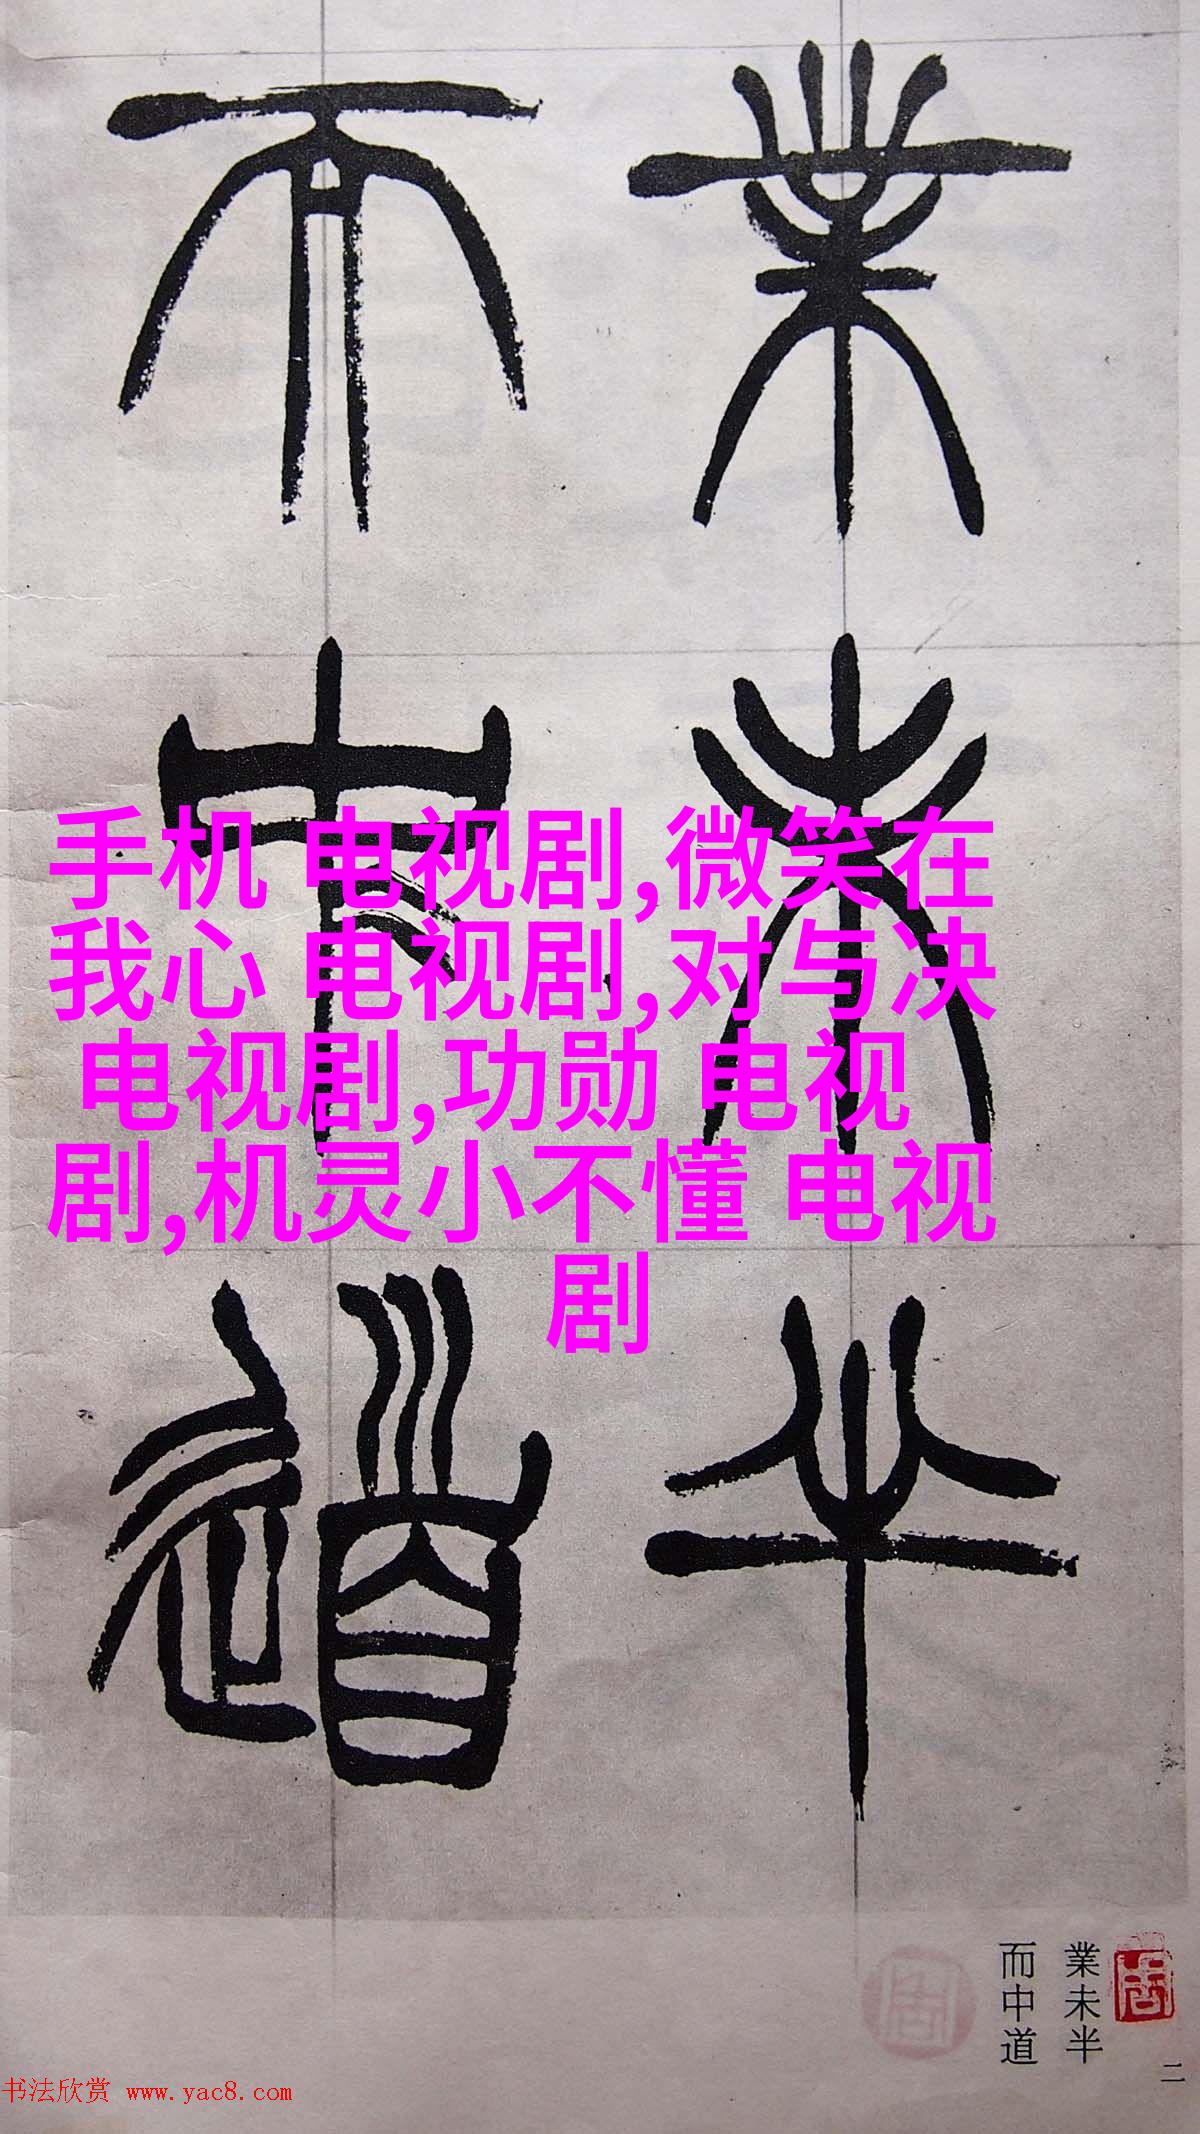 業未半
而中道
手机 电视剧,微笑在
我心 电视剧,对与决
电视剧,功勋 电视
剧,机灵小不懂 电视
剧
業未半
而中道
二
书法欣赏 www.yac8.com